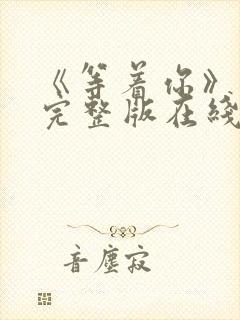 《等着你》
完整版在线
音尘寂